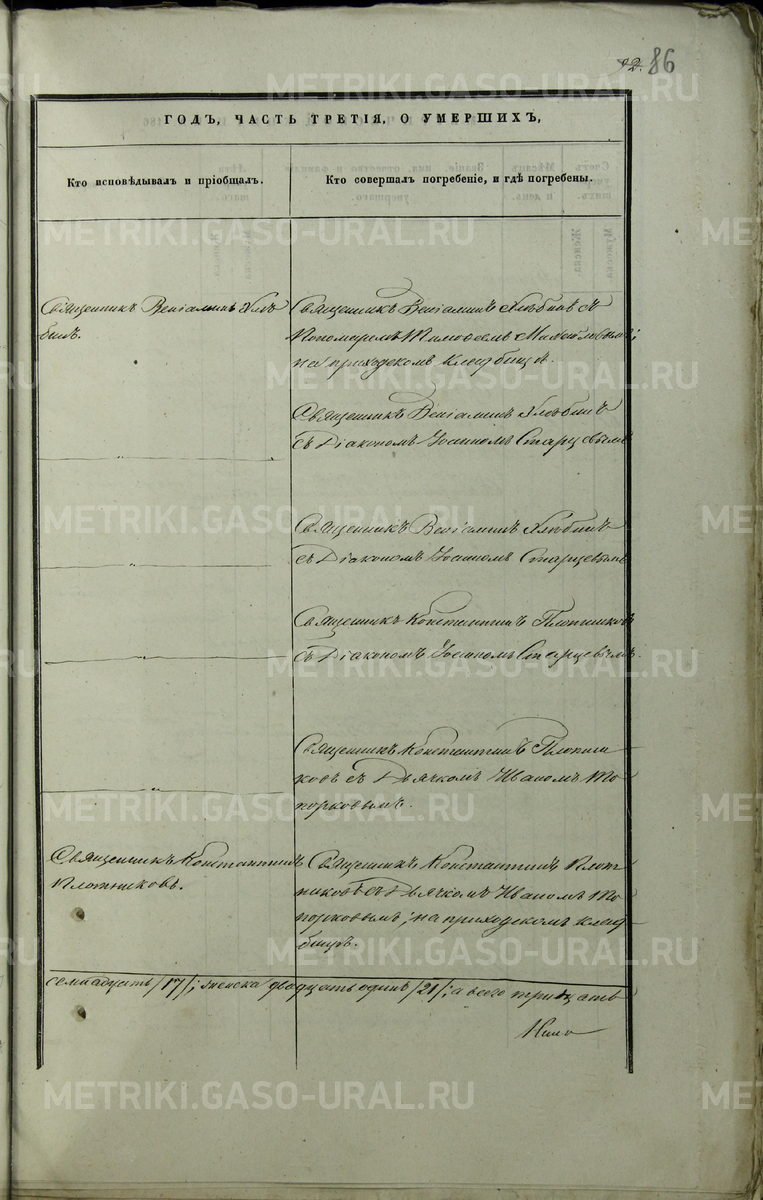 92. 86
ГОДЪ, ЧАСТЬ ТРЕТІЯ, О УМЕРШИХЪ,
Кто исповѣдывалъ и пріобщалъ.
Кто совершалъ погребеніе, и гдѣ погребены.
Священникъ Веніаминъ Хлѣ-
бинъ.
Священникъ Веніаминъ Хлѣбинъ съ
Пономаремъ Тимоѳеемъ
на приходскомъ кладбищѣ.
Священникъ Веніаминъ Хлѣбинъ
съ Діакономъ Іоанномъ Старцевымъ
Священникъ Веніаминъ Хлѣбинъ
съ Діакономъ Іоанномъ Старцевымъ
Священникъ Константинъ Плотниковъ
съ Діакономъ Іоанномъ Старцевымъ.
Священникъ Константинъ Плотни-
ковъ съ Дьячкомъ Иваномъ То-
порковымъ.
Священникъ Константинъ
Плотниковъ.
Священникъ Константинъ Плот-
никовъ съ Дьячкомъ Иваномъ То-
порковымъ; на приходскомъ клад-
бищѣ.
семнадцать /17/; женска двадцать одинъ /21/; а всего тридцать
METRIKI.GASO-URAL.RU